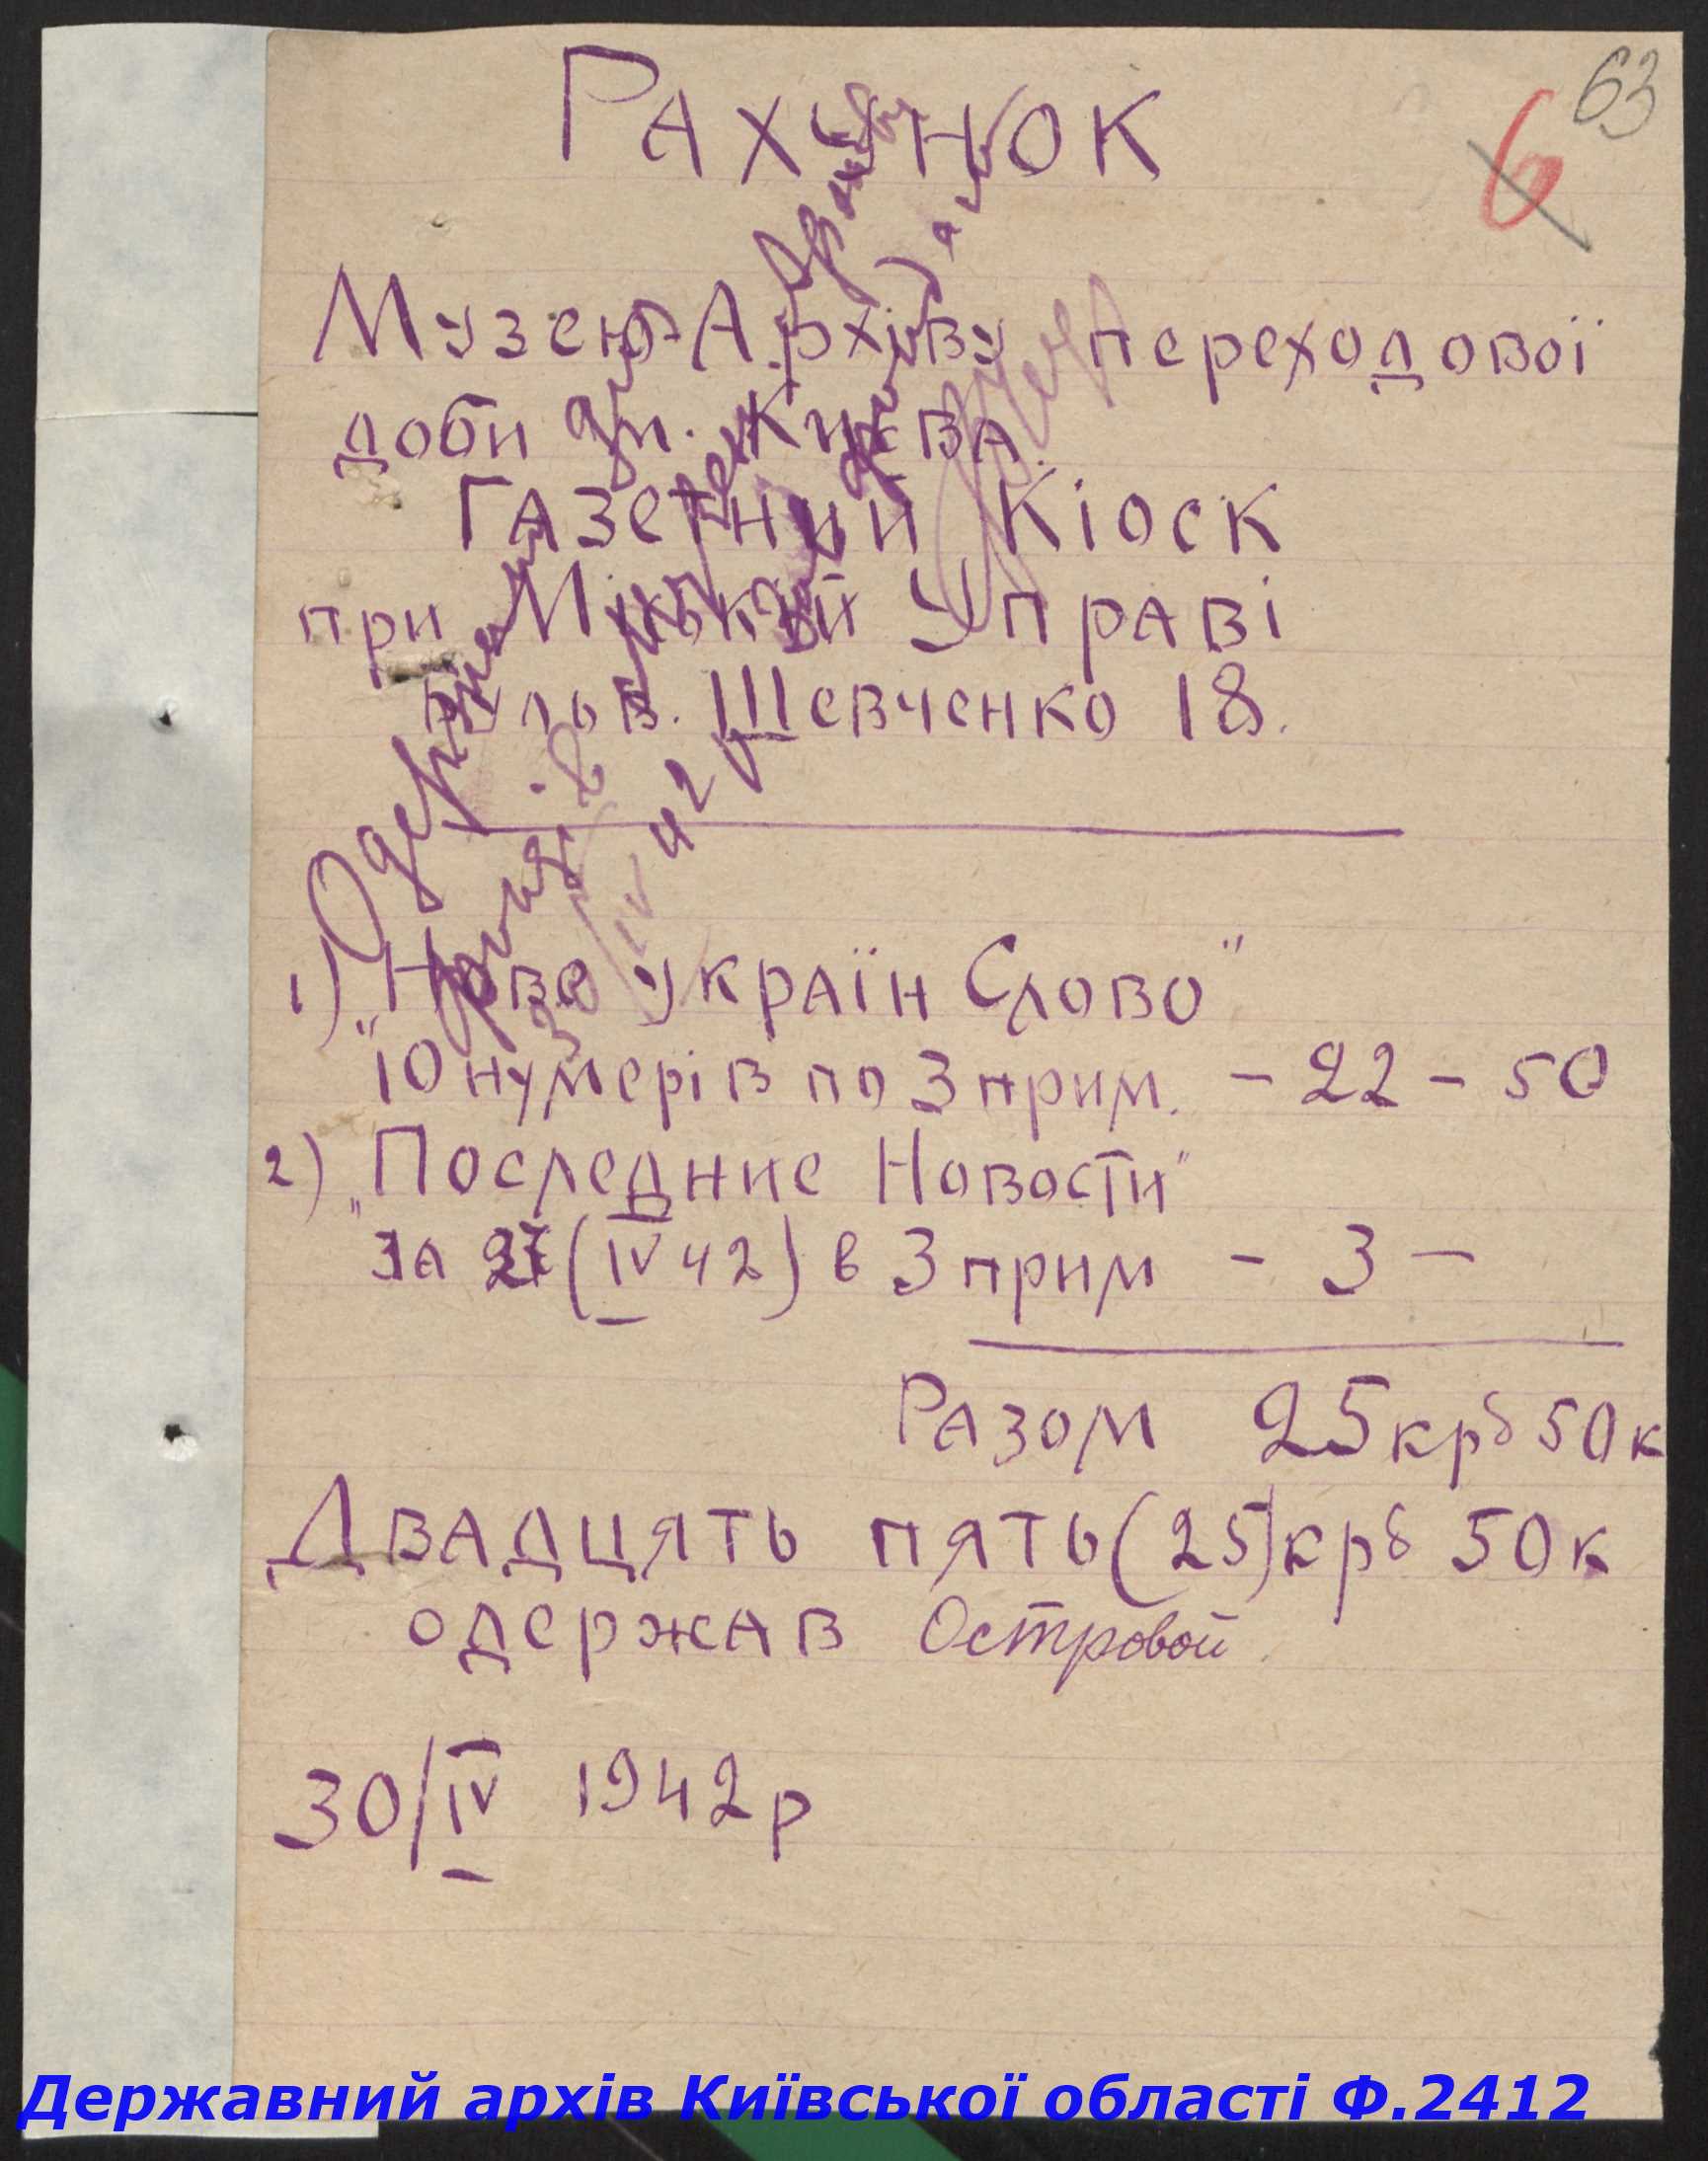 63
6
Рахунок
Музею-Архіву переходової
доби м. Києва.
Газетний Кіоск
при Міській Управі
бульв. Шевченко 18.
Одержано для
42 р
1) "Нове Україн Слово"
10 нумерів по 3 прим. - 22 - 50
2) "Последние Новости"
за 27 (IV 42) в 3 прим - 3 -
Разом 25 крб 50 к
Двадцять пять (25) крб 50 к
одержав Островой
30/IV 1942 р
Державний архів Київської області Ф.2412